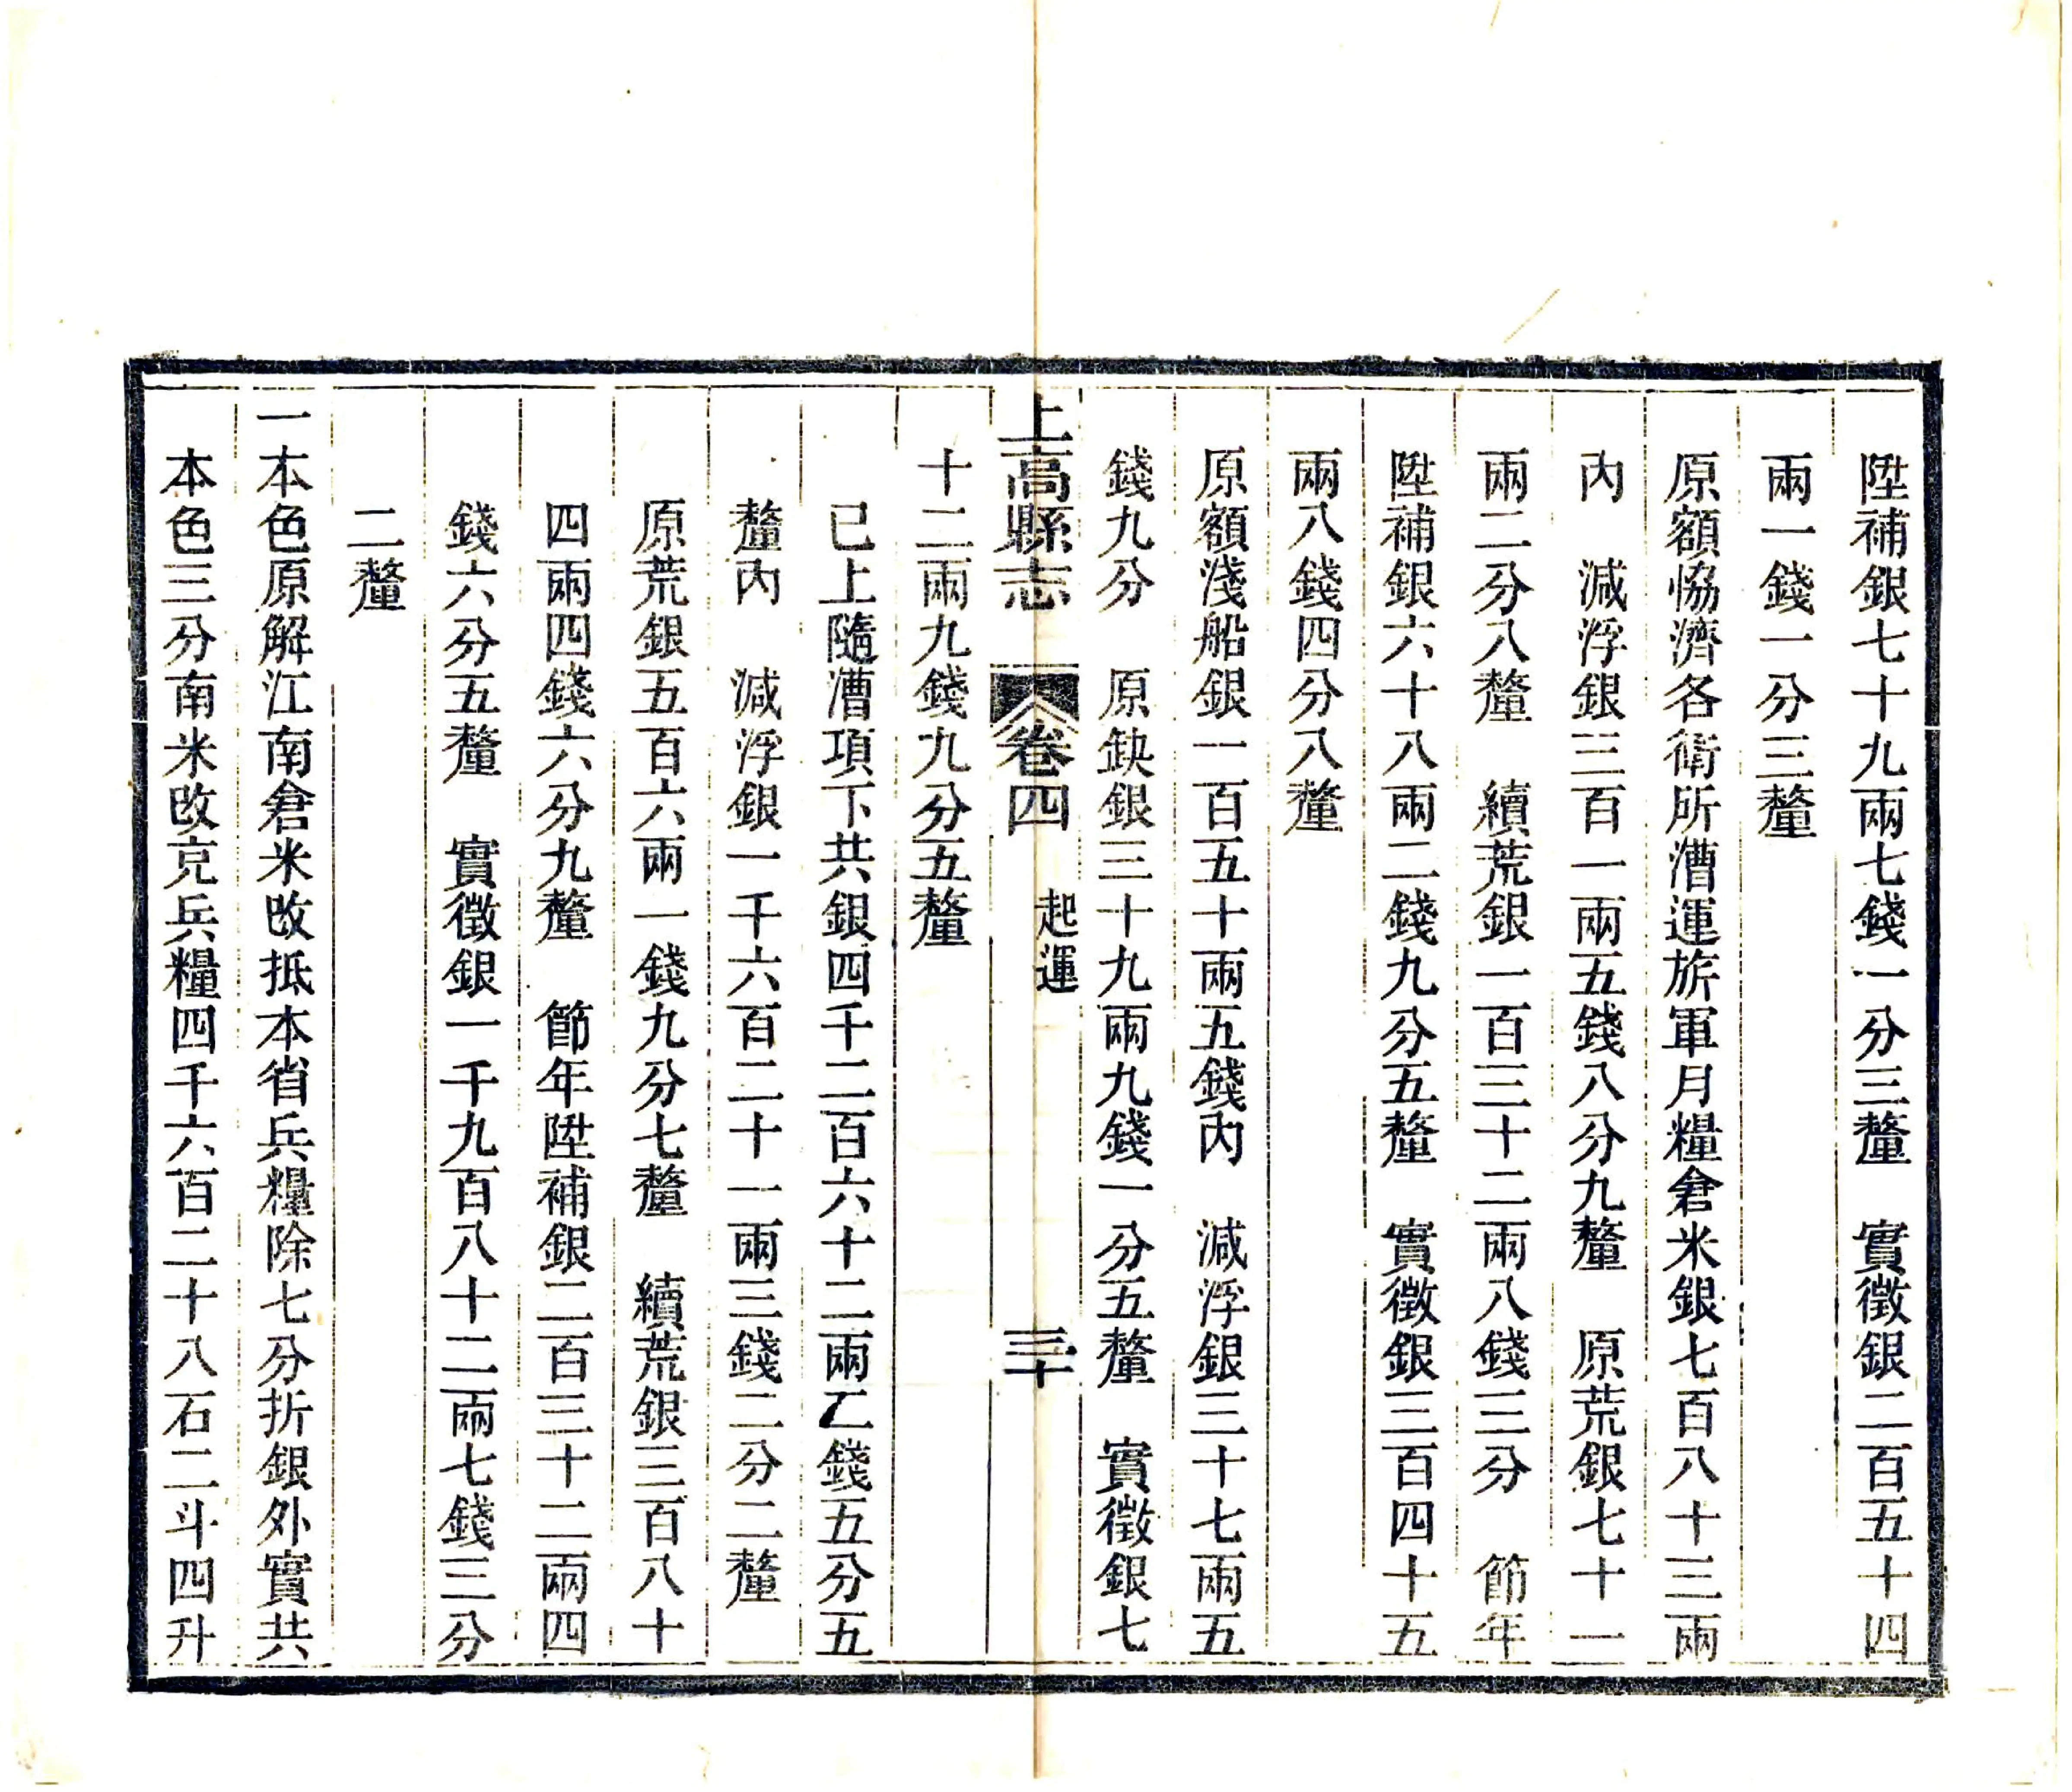 陞補銀七十九兩七錢一分三釐　實徵銀二百五十四
兩一錢一分三釐
原額恊濟各衛所漕運旂軍月糧倉米銀七百八十三兩
內　減浮銀三百一兩五錢八分九釐　原荒銀七十一
兩二分八釐　續荒銀一百三十二兩八錢三分　節年
陞補銀六十八兩二錢九分五釐　實徵銀三百四十五
兩八錢四分八釐
原額淺船銀一百五十兩五錢內　減浮銀三十七兩五
錢九分　原缺銀三十九兩九錢一分五釐　實徵銀七
上高縣志　卷四　起運　三十
十二兩九錢九分五釐
已上隨漕項下共銀四千二百六十二兩乙錢五分五
釐內　減浮銀一千六百二十一兩三錢二分二釐
原荒銀五百六兩一錢九分七釐　續荒銀三百八十
四兩四錢六分九釐　節年陞補銀二百三十二兩四
錢六分五釐　實徵銀一千九百八十二兩七錢三分
二釐
一本色原解江南倉米改抵本省兵糧除七分折銀外實共
本色三分南米改克兵糧四千六百二十八石二斗四升